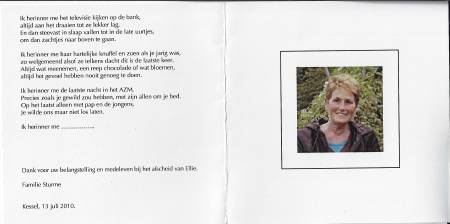 Ik herinner me het televisie kijken op de bank,
altijd aan het draaien tot ze lekker lag.
En dan steevast in slaap vallen tot in de late uurtjes,
om dan zachtjes naar boven te gaan.
Ik herinner me haar hartelijke knuffel en zoen als je jarig was,
zo welgemeend alsof ze telkens dacht dit is de laatste keer.
Altijd wat meenemen, een reep chocolade of wat bloemen,
altijd het gevoel hebben nooit genoeg te doen.
Ik herinner me de laatste nacht in het AZM.
Precies zoals je gewild zou hebben, met zijn allen om je bed.
Op het laatst alleen met pap en de jongens,
je wilde ons maar niet los laten.
Ik herinner me ..................
Dank voor uw belangstelling en medeleven bij het afscheid van Fillie.
Familie Sturme
Kessel, 13 juli 2010.